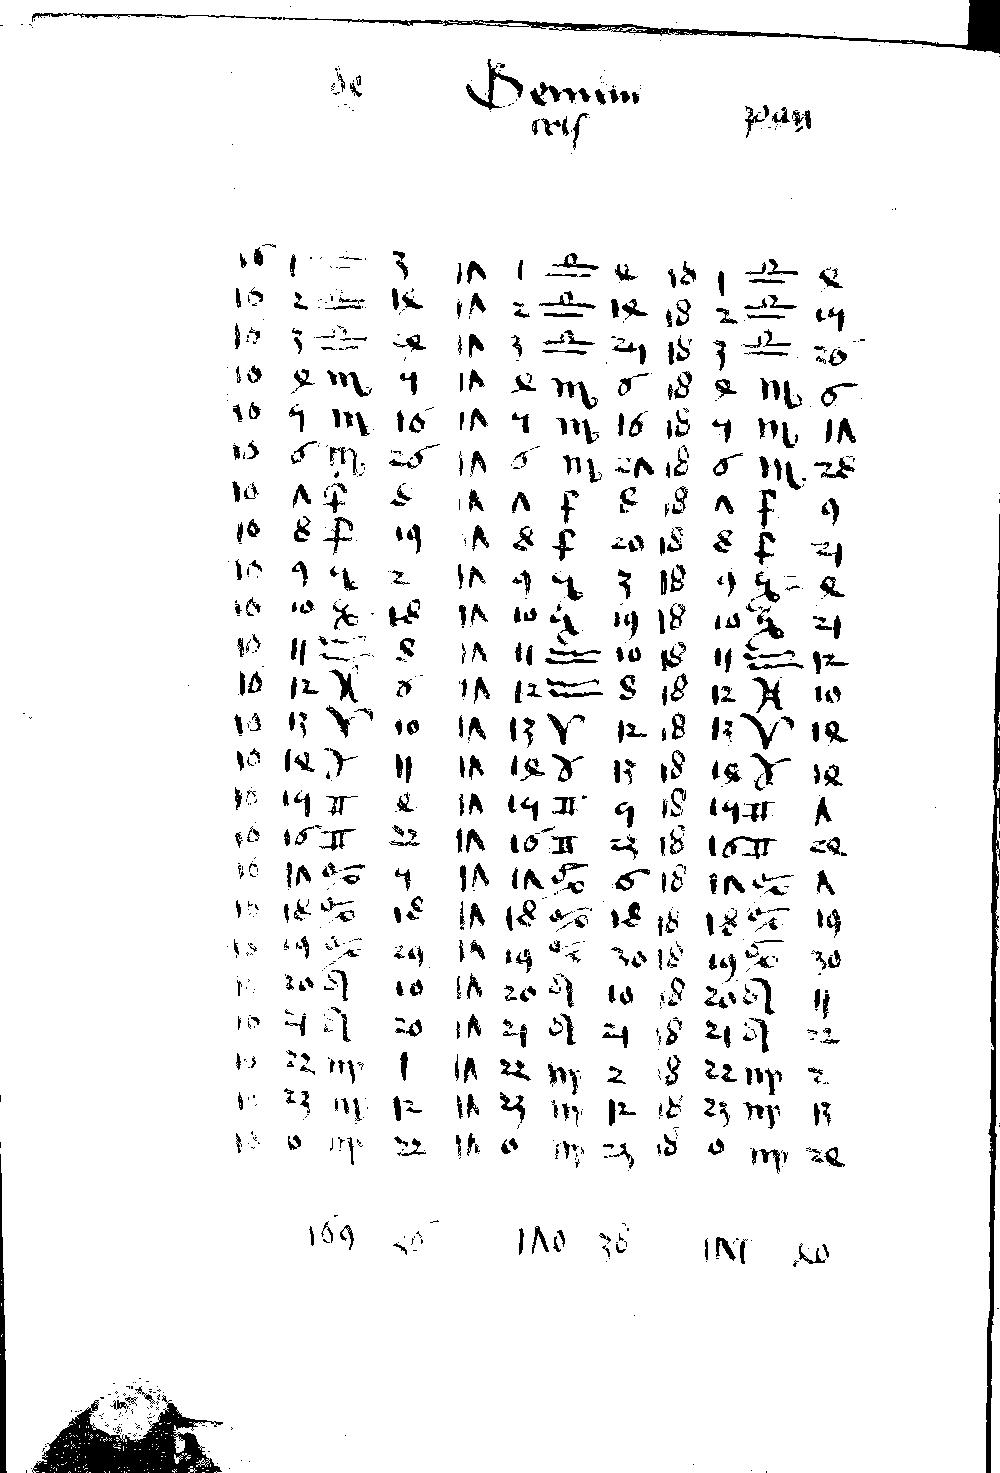 de Gemini
16 1 ♎ 3 17 1 ♎ 4 18 1 ♎ 4
16 2 ♎ 14 17 2 ♎ 14 18 2 ♎ 15
16 3 ♎ 24 17 3 ♎ 25 18 3 ♎ 26
16 4 ♏ 5 17 4 ♏ 6 18 4 ♏ 6
16 5 ♏ 16 17 5 ♏ 16 18 5 ♏ 17
16 6 ♏ 26 17 6 ♏ 27 18 6 ♏ 28
16 7 ♐ 8 17 7 ♐ 8 18 7 ♐ 9
16 8 ♐ 19 17 8 ♐ 20 18 8 ♐ 21
16 9 ♑ 2 17 9 ♑ 3 18 9 ♑ 4
16 10 ♑ 18 17 10 ♑ 19 18 10 ♑ 21
16 11 ♒ 8 17 11 ♒ 10 18 11 ♒ 12
16 12 ♓ 6 17 12 ♒ 8 18 12 ♓ 10
16 13 ♈ 10 17 13 ♈ 12 18 13 ♈ 14
16 14 ♉ 11 17 14 ♉ 13 18 14 ♉ 14
16 15 ♊ 4 17 15 ♊ 5 18 15 ♊ 7
16 16 ♊ 22 17 16 ♊ 23 18 16 ♊ 24
16 17 ♋ 5 17 17 ♋ 6 18 17 ♋ 7
16 18 ♋ 18 17 18 ♋ 18 18 18 ♋ 19
16 19 ♋ 29 17 19 ♋ 30 18 19 ♋ 30
16 20 ♌ 10 17 20 ♌ 10 18 20 ♌ 11
16 21 ♌ 20 17 21 ♌ 21 18 21 ♌ 22
16 22 ♍ 1 17 22 ♍ 2 18 22 ♍ 2
16 23 ♍ 12 17 23 ♍ 12 18 23 ♍ 13
16 0 ♍ 22 17 0 ♍ 23 18 0 ♍ 24
169 36 170 38 171 40